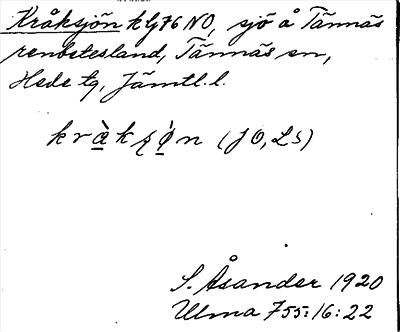 Kråksjön k Gf76 NO, sjö å Tännäs
renbetesland, Tännäs sn,
Hede tg, Jämtl. l.
kràkʂø̀n (JO, LS)
S. Åsander 1920
Ulma 755:16:22